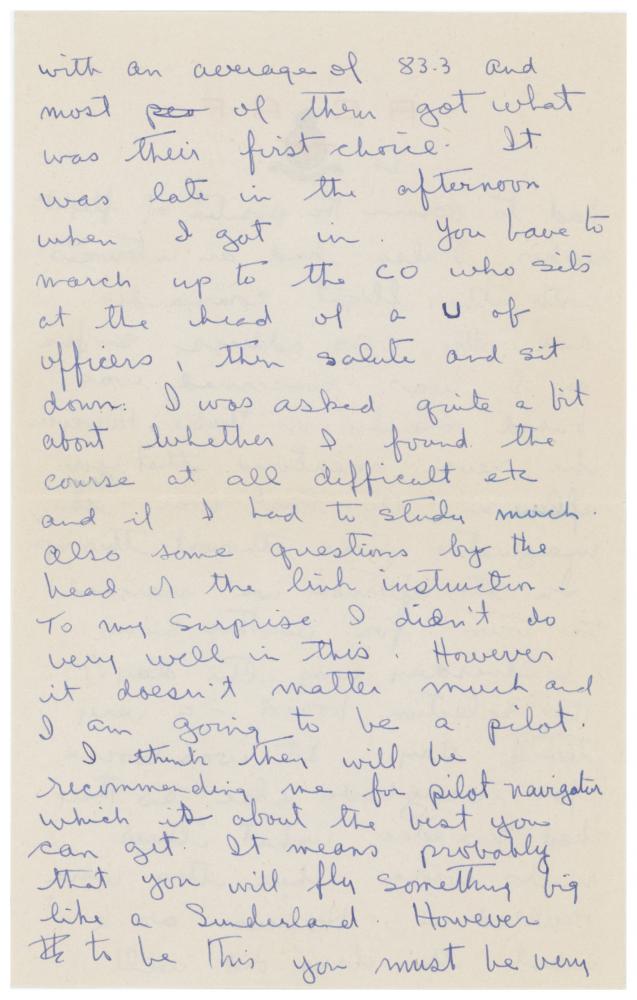 with an average of 83.3 and
most of them got what
was their first choice. It
was late in the afternoon
when I got in. You have to
march up to the CO who sits
at the head of a U of
officers, then salute and sit
down. I was asked quite a bit
about whether I found the
course at all difficult etc
and if I had to study much.
Also some questions by the
head of the link instruction.
To my surprise I didn't do
very well in this. However
it doesn't matter much and
I am going to be a pilot.
I think they will be
recommending me for pilot navigator
which is about the best you
can get. It means probably
that you will fly something big
like a Sunderland. However
to be this you must be very